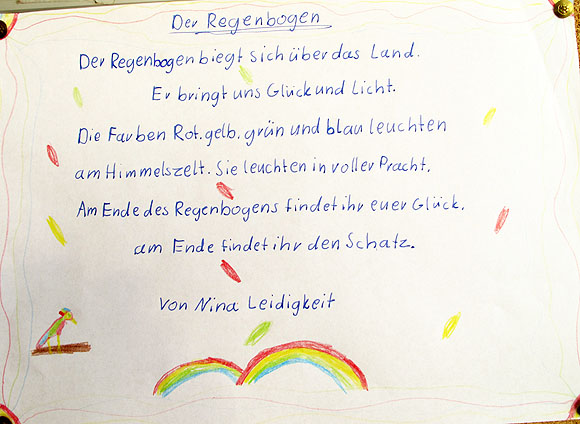 Der Regenbogen
Der Regenbogen biegt sich über das Land.
Er bringt uns Glück und Licht.
Die Farben Rot, gelb, grün und blau leuchten
am Himmelszelt. Sie leuchten in voller Pracht.
Am Ende des Regenbogens findet ihr euer Glück,
am Ende findet ihr den Schatz.
von Nina Leidigkeit